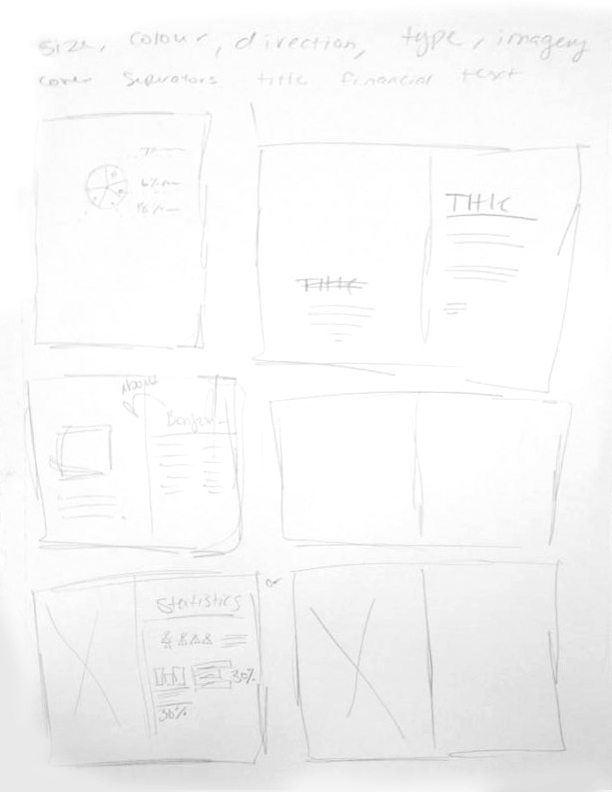 size, colour, direction, type, imagery
cover seperators title financial text
7%
6%
18%
Title
Title
About
Bonjour
or
Statistics
30%
36%